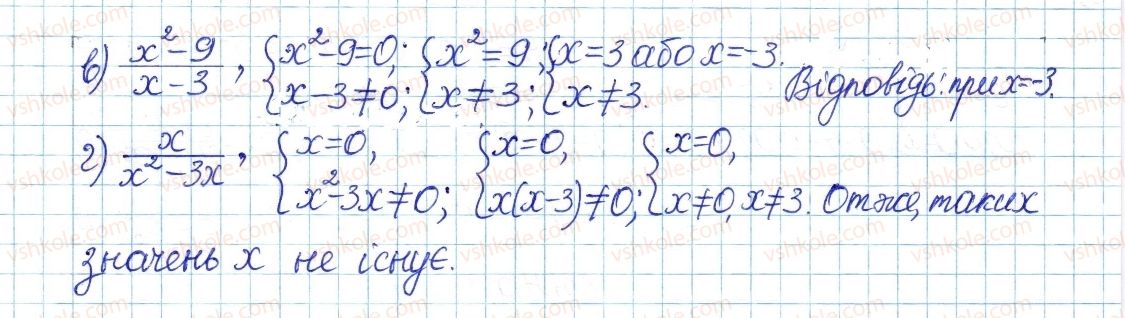 в) x²-9 / x-3, { x²-9=0; x-3≠0; { x²=9; x≠3; { x=3 або x=-3. x≠3. Відповідь: при x=-3.
г) x / x²-3x, { x=0, x²-3x≠0; { x=0, x(x-3)≠0; { x=0, x≠0, x≠3. Отже, таких
значень x не існує.